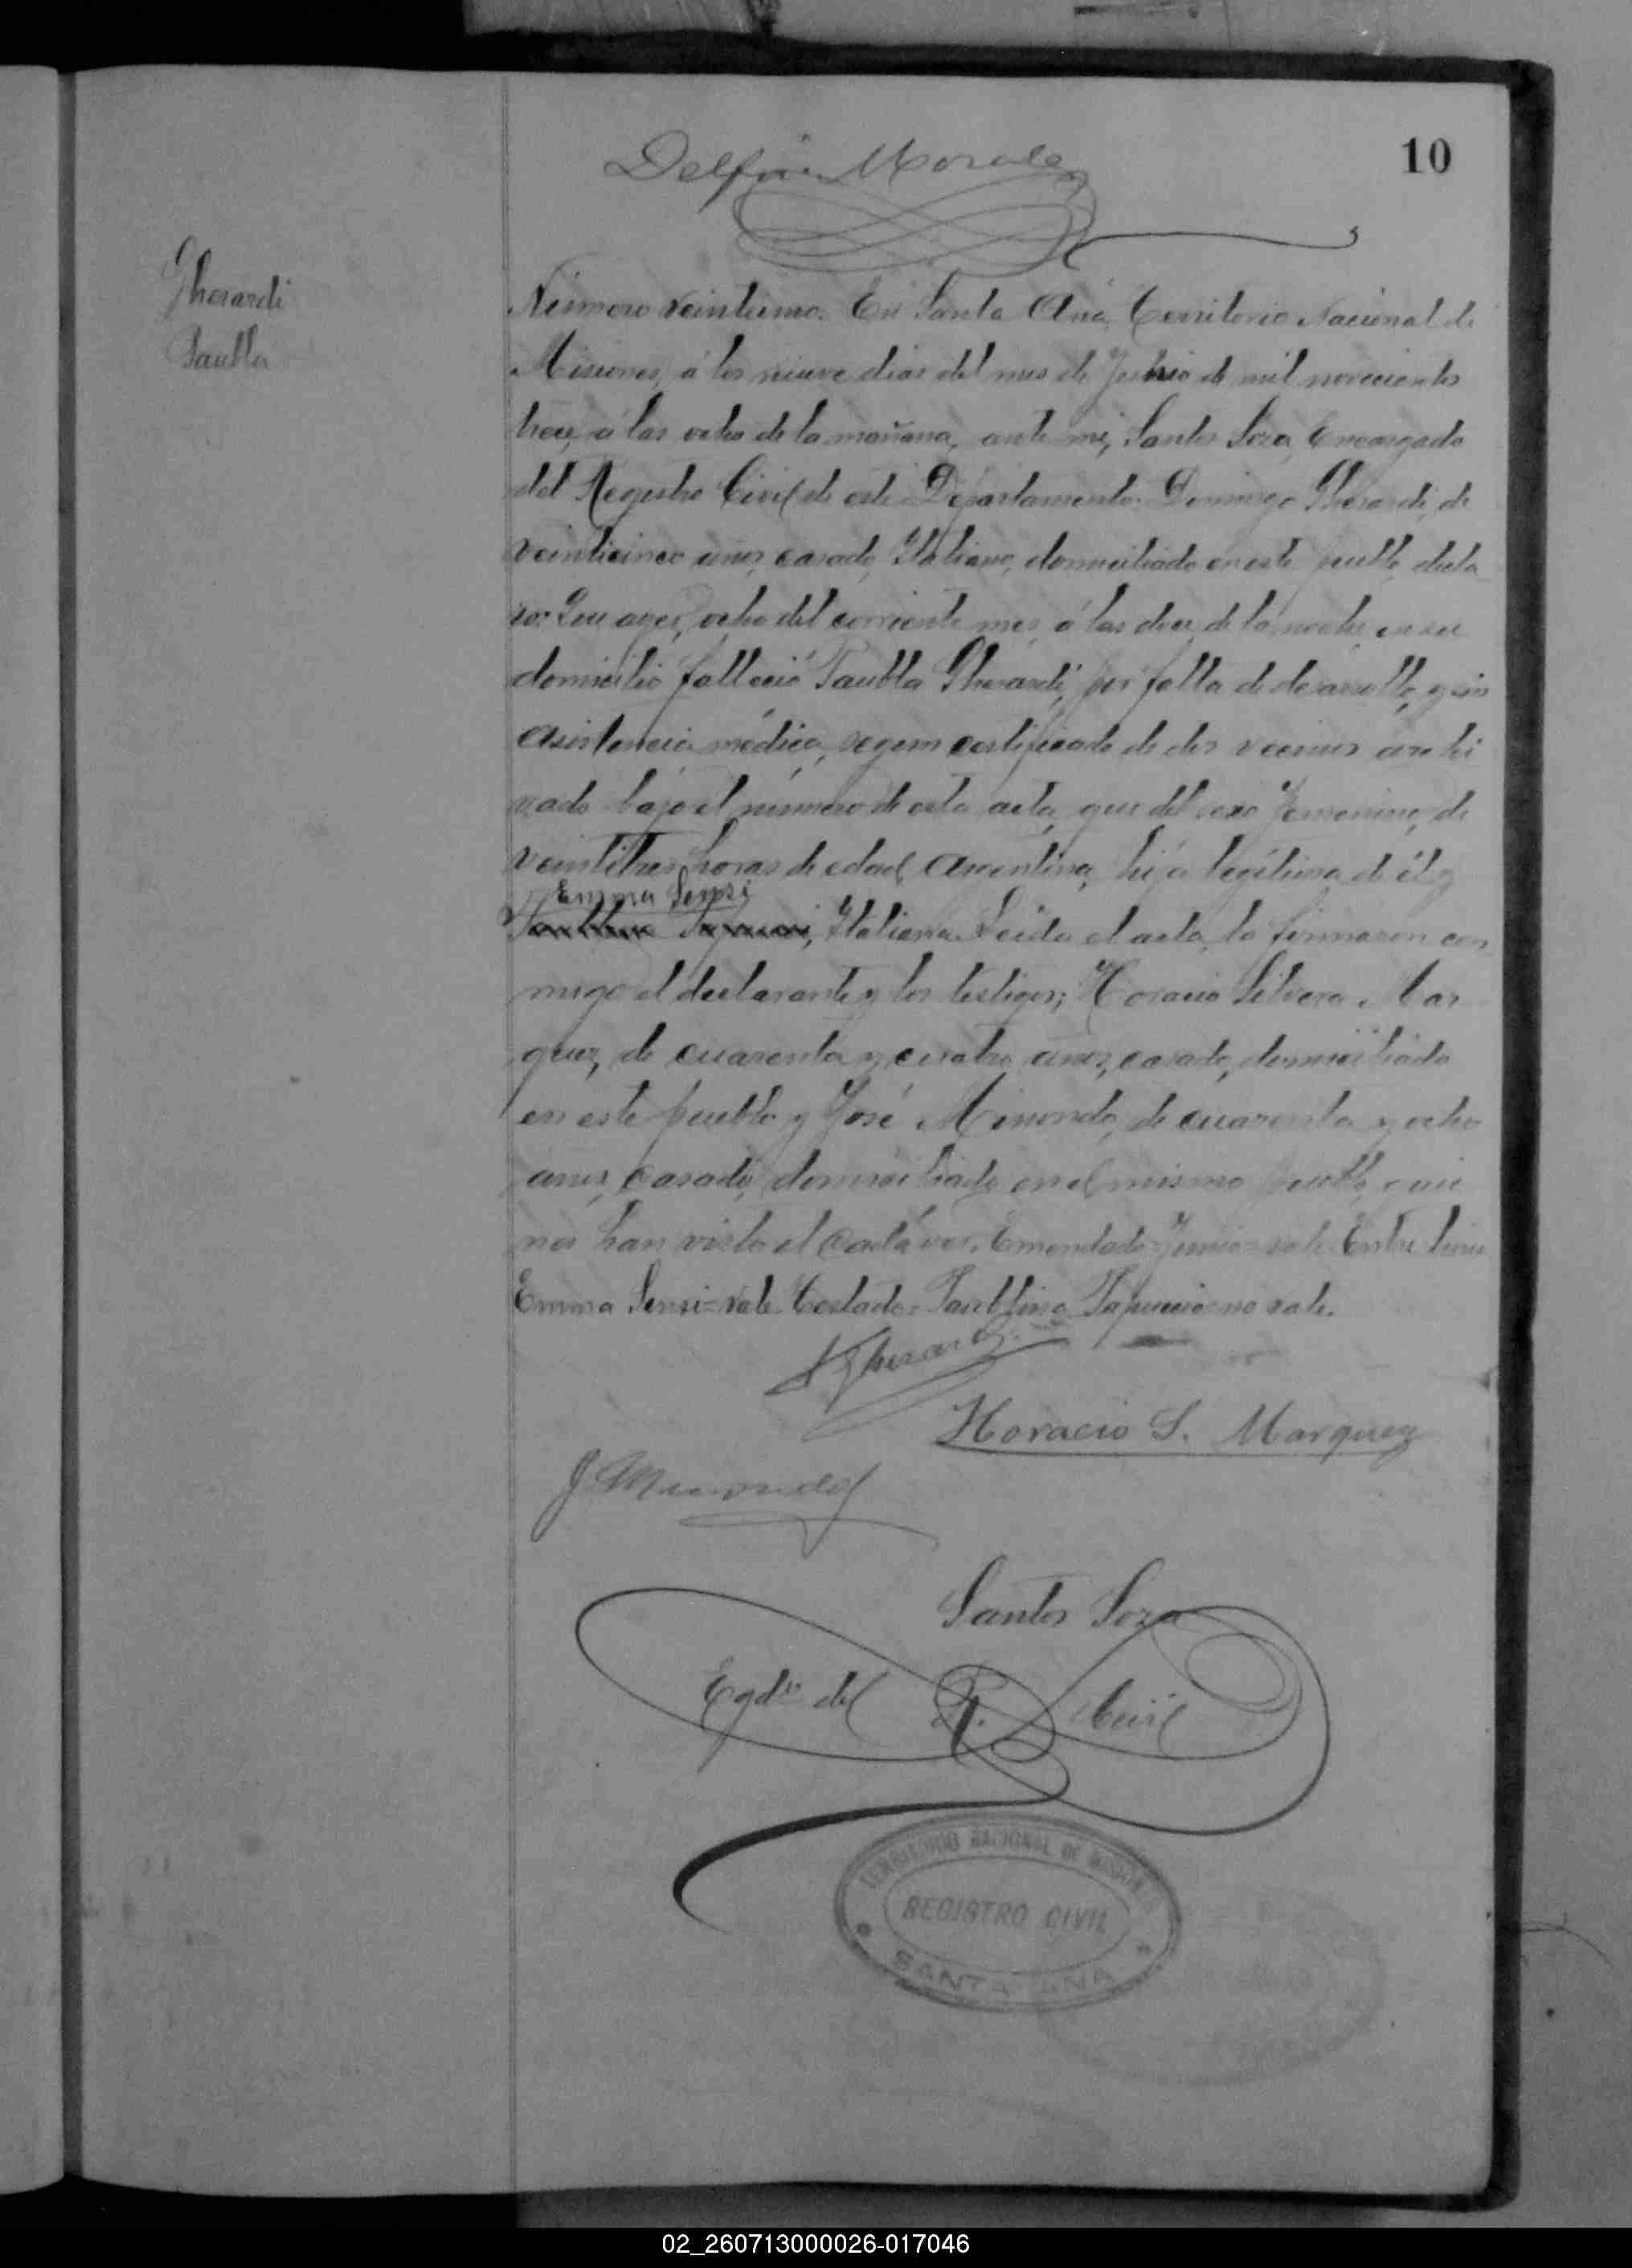 10
Delfin Morales
Gherardi
Taubla
Número veintiuno. En Santa Ana, Territorio Nacional de
Misiones, á los nueve dias del mes de Junio de mil novecientos
trece, á las ocho de la mañana, ante mi, Santos Soza, Encargado
del Registro Civil de este Departamento: Domingo Gherardi, de
veinticinco años, casado, Italiano, domiciliado en este pueblo, decla-
ro: Que ayer, ocho del corriente mes, á las doce de la noche en su
domicilio falleció Taubla Gherardi, por falta de desarrollo, y sin
asistencia médica, segun certificado de dos vecinos archi
vado bajo el número de esta acta, que del sexo femenino, de
veintitres horas de edad, Arentina, hija legítima de él y
Emma Sensi
Italiana. Leida el acta, la firmaron con
migo el declarante y los testigos; Horacio Silvera Mar
quez, de cuarenta y cuatro años, casado, domiciliado
en este pueblo y José Minondo, de cuarenta y ocho
años, casado, domiciliado en el mismo pueblo, quie
nes han visto el cadáver. Emendado=Junio=vale. Entre linea
Emma Sensi=vale. Testado= no vale.
Gherardi
Horacio S. Marquez
J. Minondo
Santos Soza
Egdo del R. Civil
TERRITORIO NACIONAL DE MISIONES
REGISTRO CIVIL
SANTA ANA
02_260713000026-017046